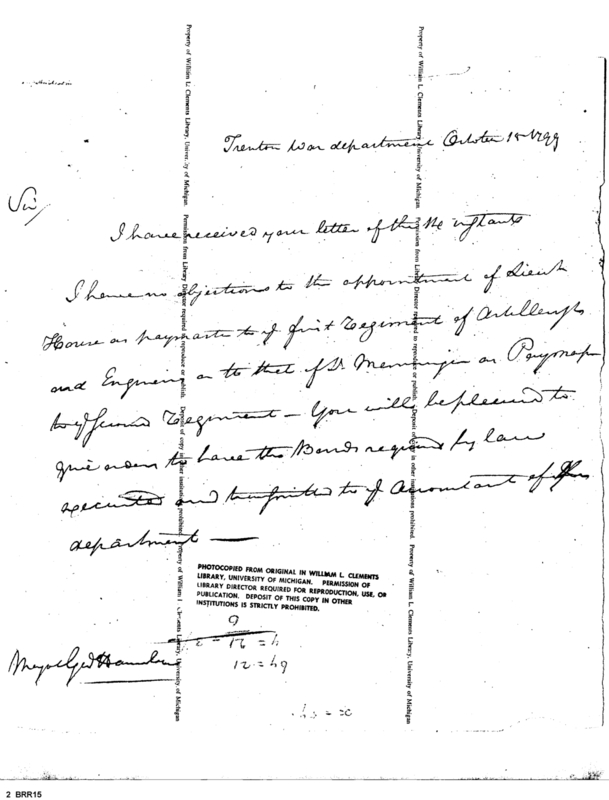 Trenton War department October 15 1799
Sir/
I have received your letter of the 14 instant
I have no objections to the appointment of Lieut
House as paymaster to ye first Regiment of Artillerists
and Engineers or to that of Lt Memminger as Paymaster
to ye Second Regiment – You will be pleased to
give orders to have the Bonds required by law
executed and transmitted to ye Accountant of this
department —
Property of William L. Clements Library, University of Michigan. Permission from Library Director required to reproduce or publish. Deposit of copy in other institutions prohibited. Property of William L. Clements Library, University of Michigan
Property of William L. Clements Library, University of Michigan. Permission from Library Director required to reproduce or publish. Deposit of copy in other institutions prohibited. Property of William L. Clements Library, University of Michigan
PHOTOCOPIED FROM ORIGINAL IN WILLIAM L. CLEMENTS
LIBRARY, UNIVERSITY OF MICHIGAN. PERMISSION OF
LIBRARY DIRECTOR REQUIRED FOR REPRODUCTION, USE, OR
PUBLICATION. DEPOSIT OF THIS COPY IN OTHER
INSTITUTIONS IS STRICTLY PROHIBITED.
9
12 = 49
Major Genl Hamilton
2 BRR15